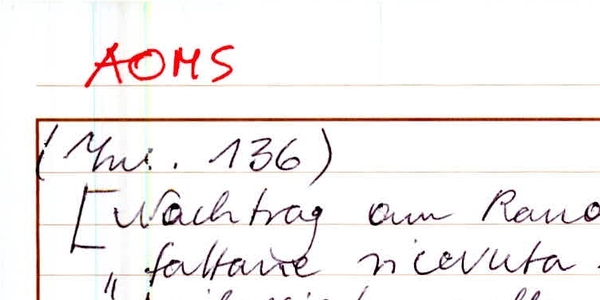 AOMS
(Inv. 136)
[Nachtrag am Rand
" faltane ricevuta